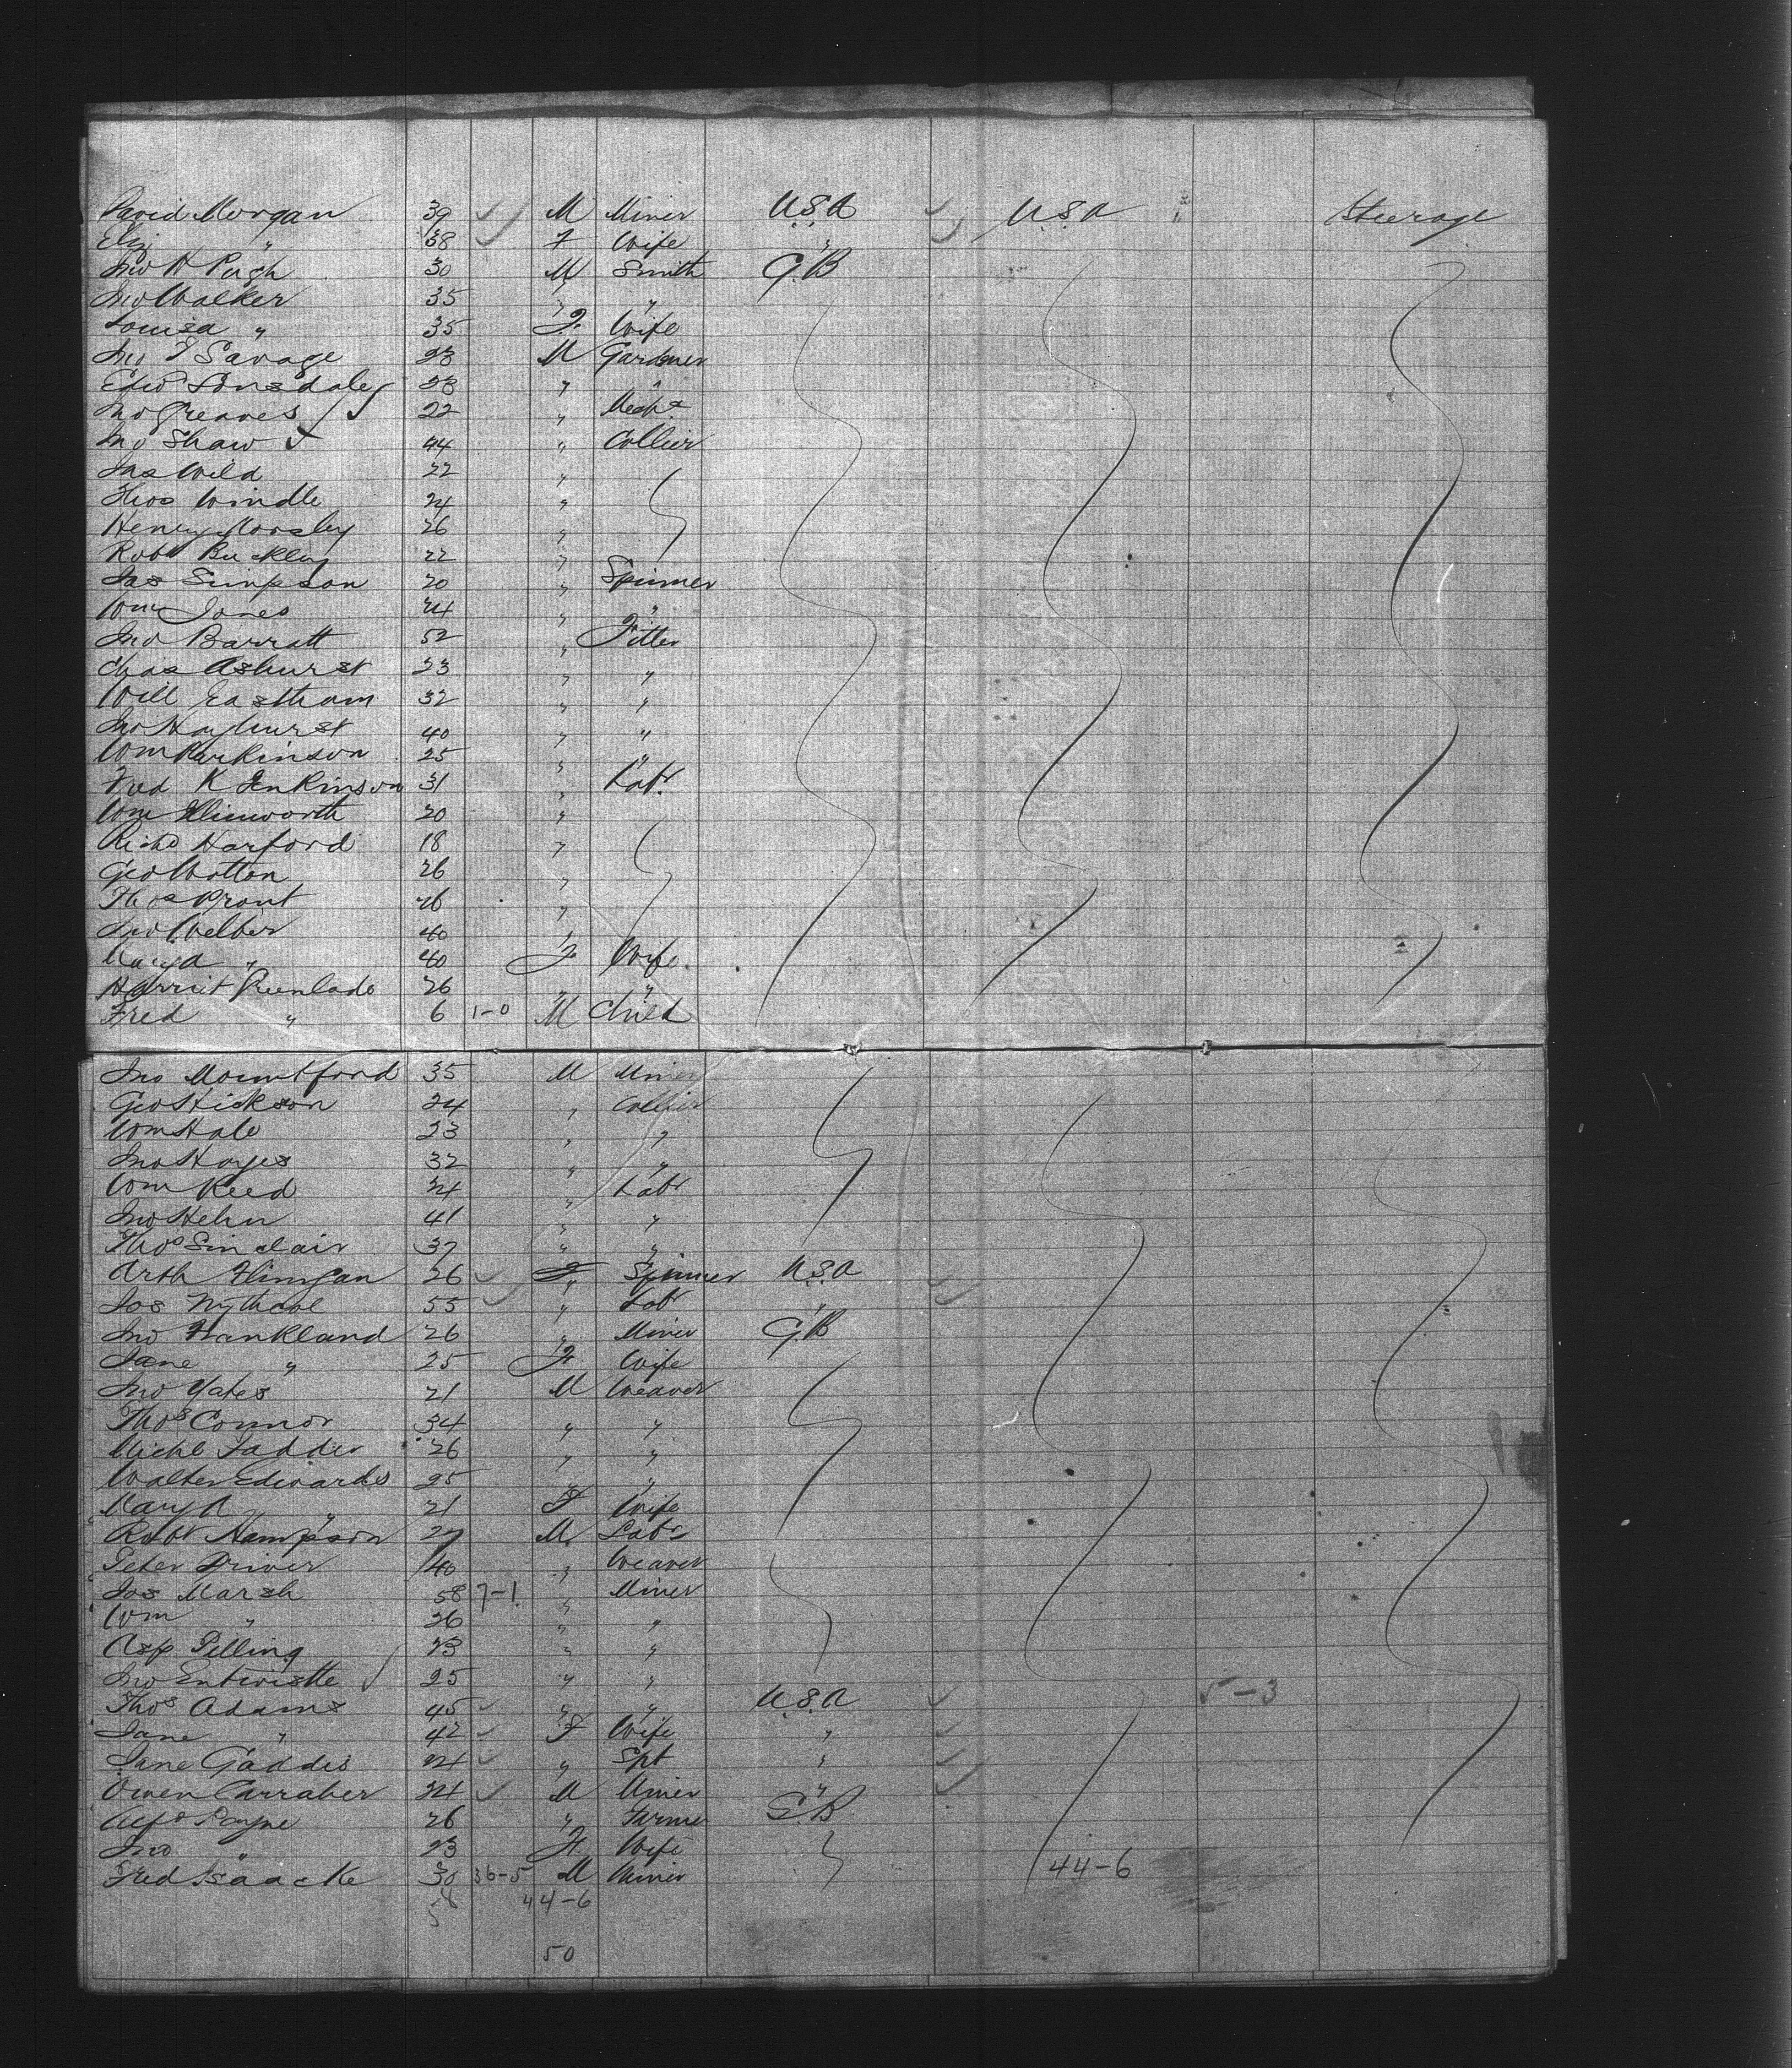 David Morgan 39 M Miner U.S.A U.S.A Steerage
Eliz " 38 F Wife "
Jno H Pugh 30 M Smith G.B
Jno Walker 35 " "
Louisa " 35 F. Wife
Jno T Savage 23 M Gardner
Edwd Lonsdale 28 " "
Jno Greaves 22 " Mech
Jno Shaw 44 " Collier
Jas Wild 22 "
Thos Windle 24 "
Henry Morsley 26 "
Robt Buckley 22 "
Jas Simpson 20 " Spinner
Wm Jones 24 " "
Jno Barratt 52 " Fitter
Chas Ashurst 23 " "
Will Eastham 32 " "
Jno Hayhurst 40 " "
Wm Parkinson 25 " "
Fred K Jenkinson 31 " Labr.
Wm 20 "
Richd Harford 18 "
Geo Wotton 26 "
Thos Prout 26 "
Jno Welber 40 "
Mary A " 40 F Wife.
Harriet Greenlade 26 " "
Fred " 6 1-0 M Child
Jno Mountford 35 M Miner
Geo Hickson 24 " Collier
Wm Hale 23 " "
Jno Hayes 32 " "
Wm Reed 24 " Labr
Jno Hehn 41 " "
Thos Sinclair 37 " "
Arth Flinigan 26 " Spinner U.S.A
Jos 55 " Labr "
Jno Frankland 26 " Miner G.B
Jane " 25 F. Wife
Jno Yates 21 M Weaver
Thos Connor 34 " "
Michl Faddir 26 " "
Walter Edwards 25 " "
Mary A " 21 F Wife
Robt Hampson 27 M. Labr
Peter Driver 40 " Weaver
Jos Marsh 58 7-1 " Miner
Wm " 26 " "
Asp Pilling 23 " "
Jno Entwistle 25 " "
Thos Adams 45 " " U.S.A 5-3
Jane " 42 F Wife "
Jane Gaddis 24 " Spt "
Owen Carraher 24 M Miner "
Alfd Payne 26 " Farmer G.B
Jno " 23 F Wife
Fred Isaacke 30 36-5 M Miner 44-6
58 44-6
5
50